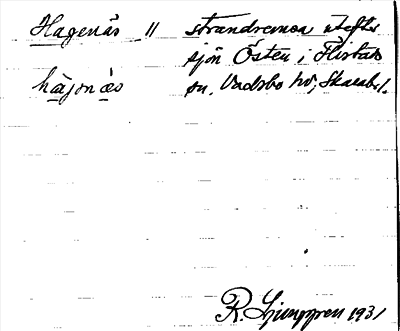 Hagenäs || strandremsa utefter
sjön Östen i Flistads
hàjǝnä̀s sn, Vadsbo hd, Skarab. l.
R. Ljunggren 1931